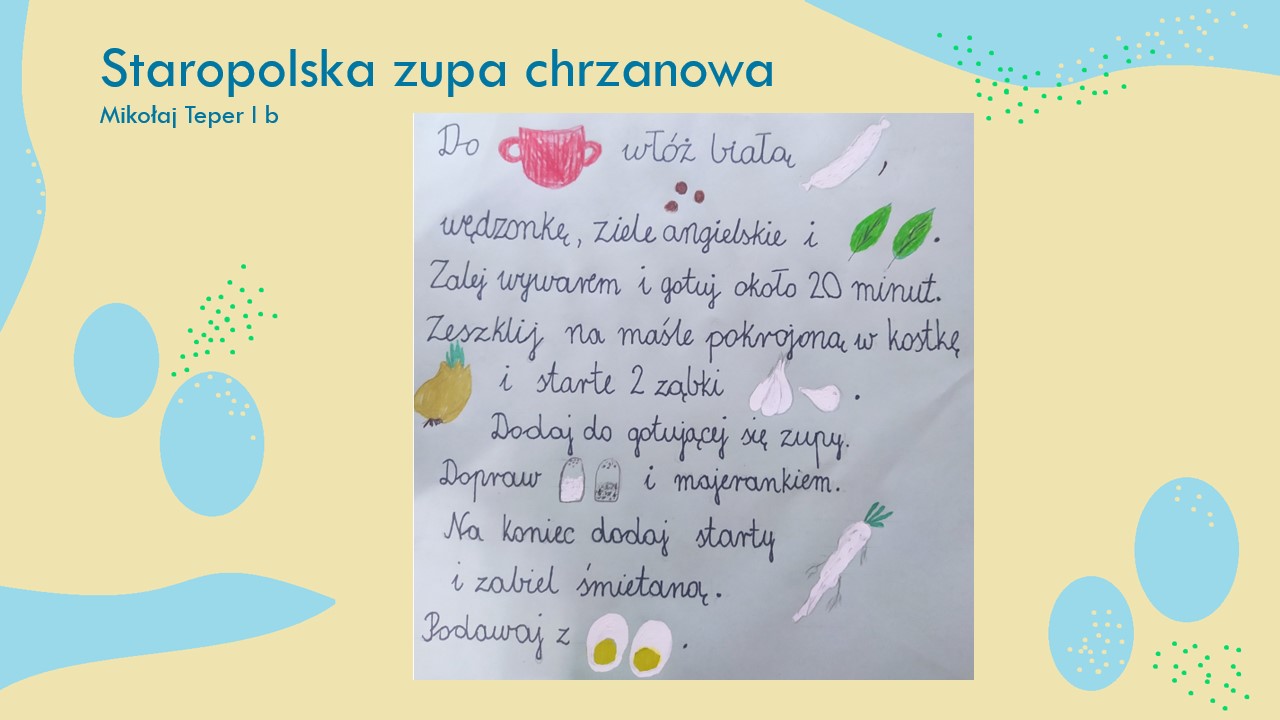 Staropolska zupa chrzanowa
Mikołaj Teper I b
Do włóż białą ,
wędzonkę, ziele angielskie i .
Zalej wywarem i gotuj około 20 minut.
Zeszklij na maśle pokrojoną w kostkę
i starte 2 ząbki .
Dodaj do gotującej się zupy.
Dopraw i majerankiem.
Na koniec dodaj starty
i zabiel śmietaną.
Podawaj z .